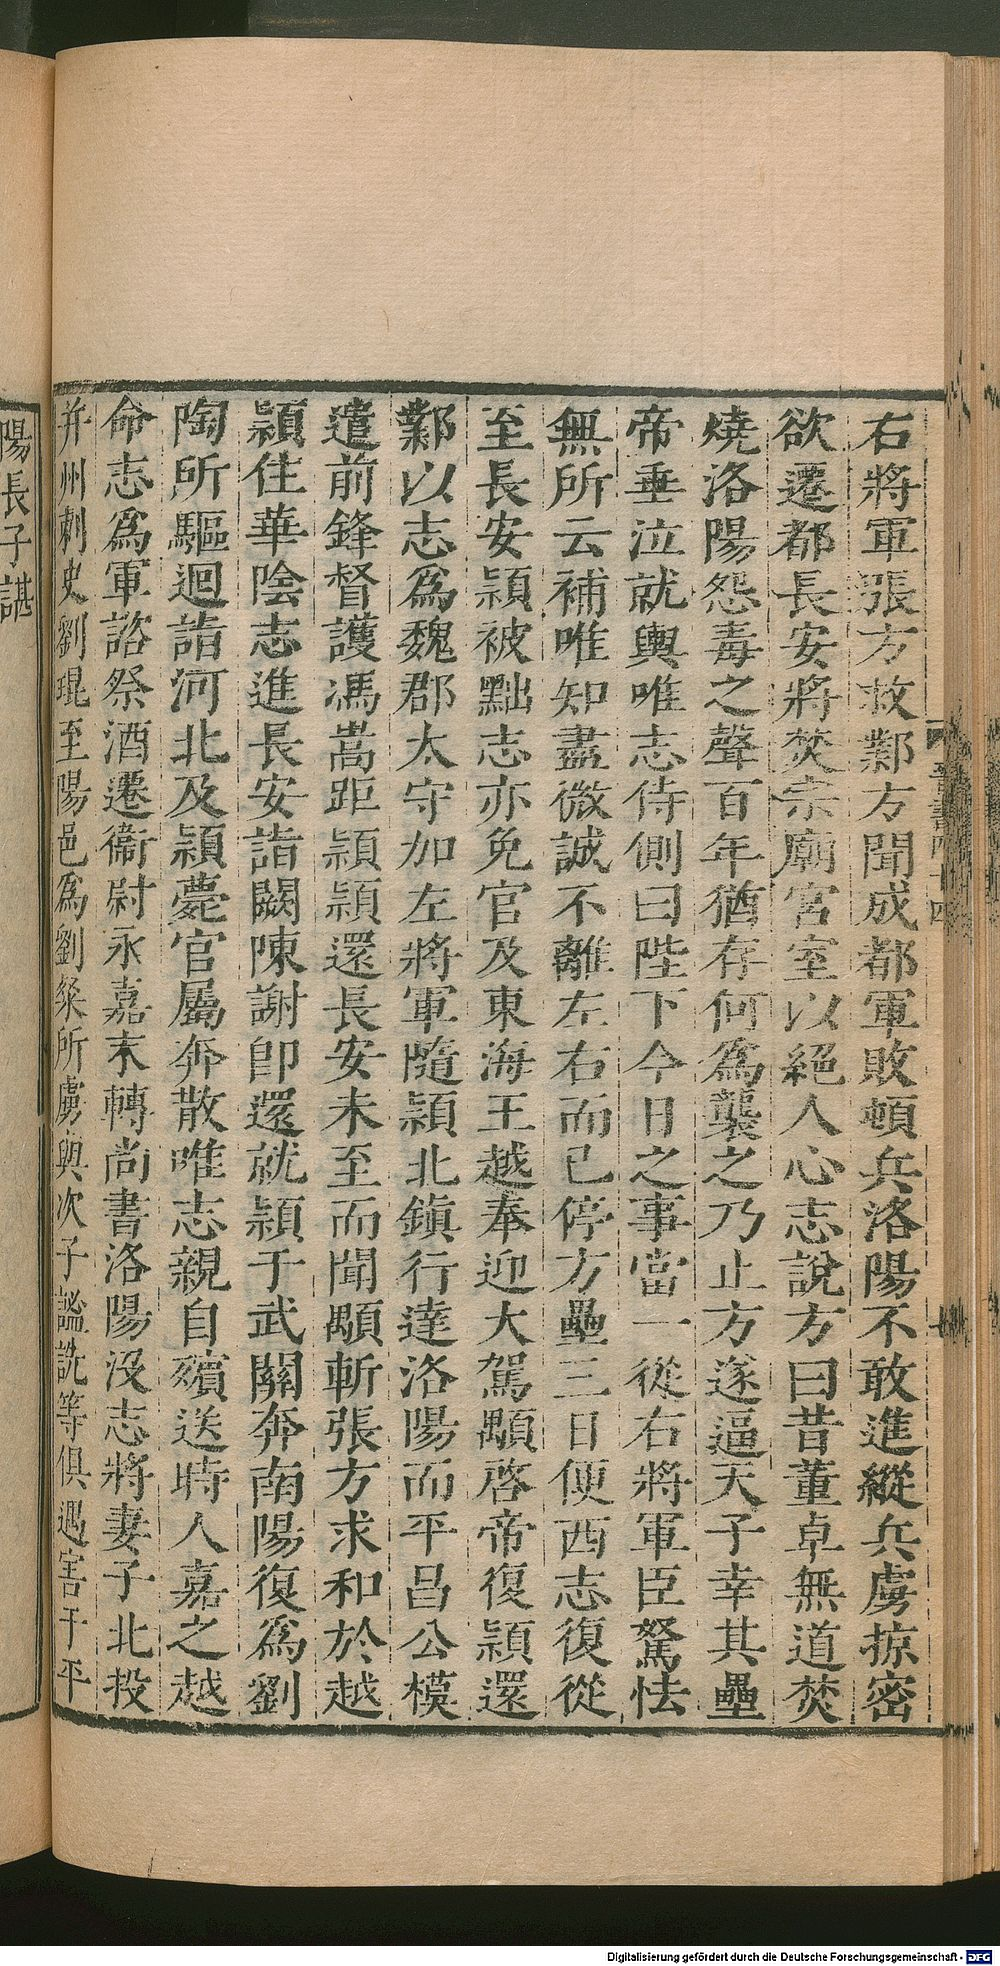 右將軍張方救鄴方聞成都軍敗頓兵洛陽不敢進縱兵虜掠密
欲遷都長安將焚宗廟宮室以絕人心志說方曰昔董卓無道焚
燒洛陽怨毒之聲百年猶存何爲襲之乃止方遂逼天子幸其壘
帝垂泣就輿唯志侍側曰陛下今日之事當一從右將軍臣駑怯
無所云補唯知盡微誠不離左右而已停方壘三日便西志復從
至長安潁被黜志亦免官及東海王越奉迎大駕顒啓帝復潁還
鄴以志爲魏郡太守加左將軍隨潁北鎮行達洛陽而平昌公模
遣前鋒督護馮嵩距潁潁還長安未至而聞顒斬張方求和於越
潁住華陰志進長安詣闕陳謝卽還就潁于武關奔南陽復爲劉
陶所驅迴詣河北及潁薨官屬奔散唯志親自殯送時人嘉之越
命志爲軍諮祭酒遷衞尉永嘉末轉尚書洛陽沒志將妻子北投
并州刺史劉琨至陽邑爲劉粲所虜與次子謐詵等俱遇害于平
陽長子諶
晉書四十四
Digitalisierung gefördert durch die Deutsche Forschungsgemeinschaft - DFG